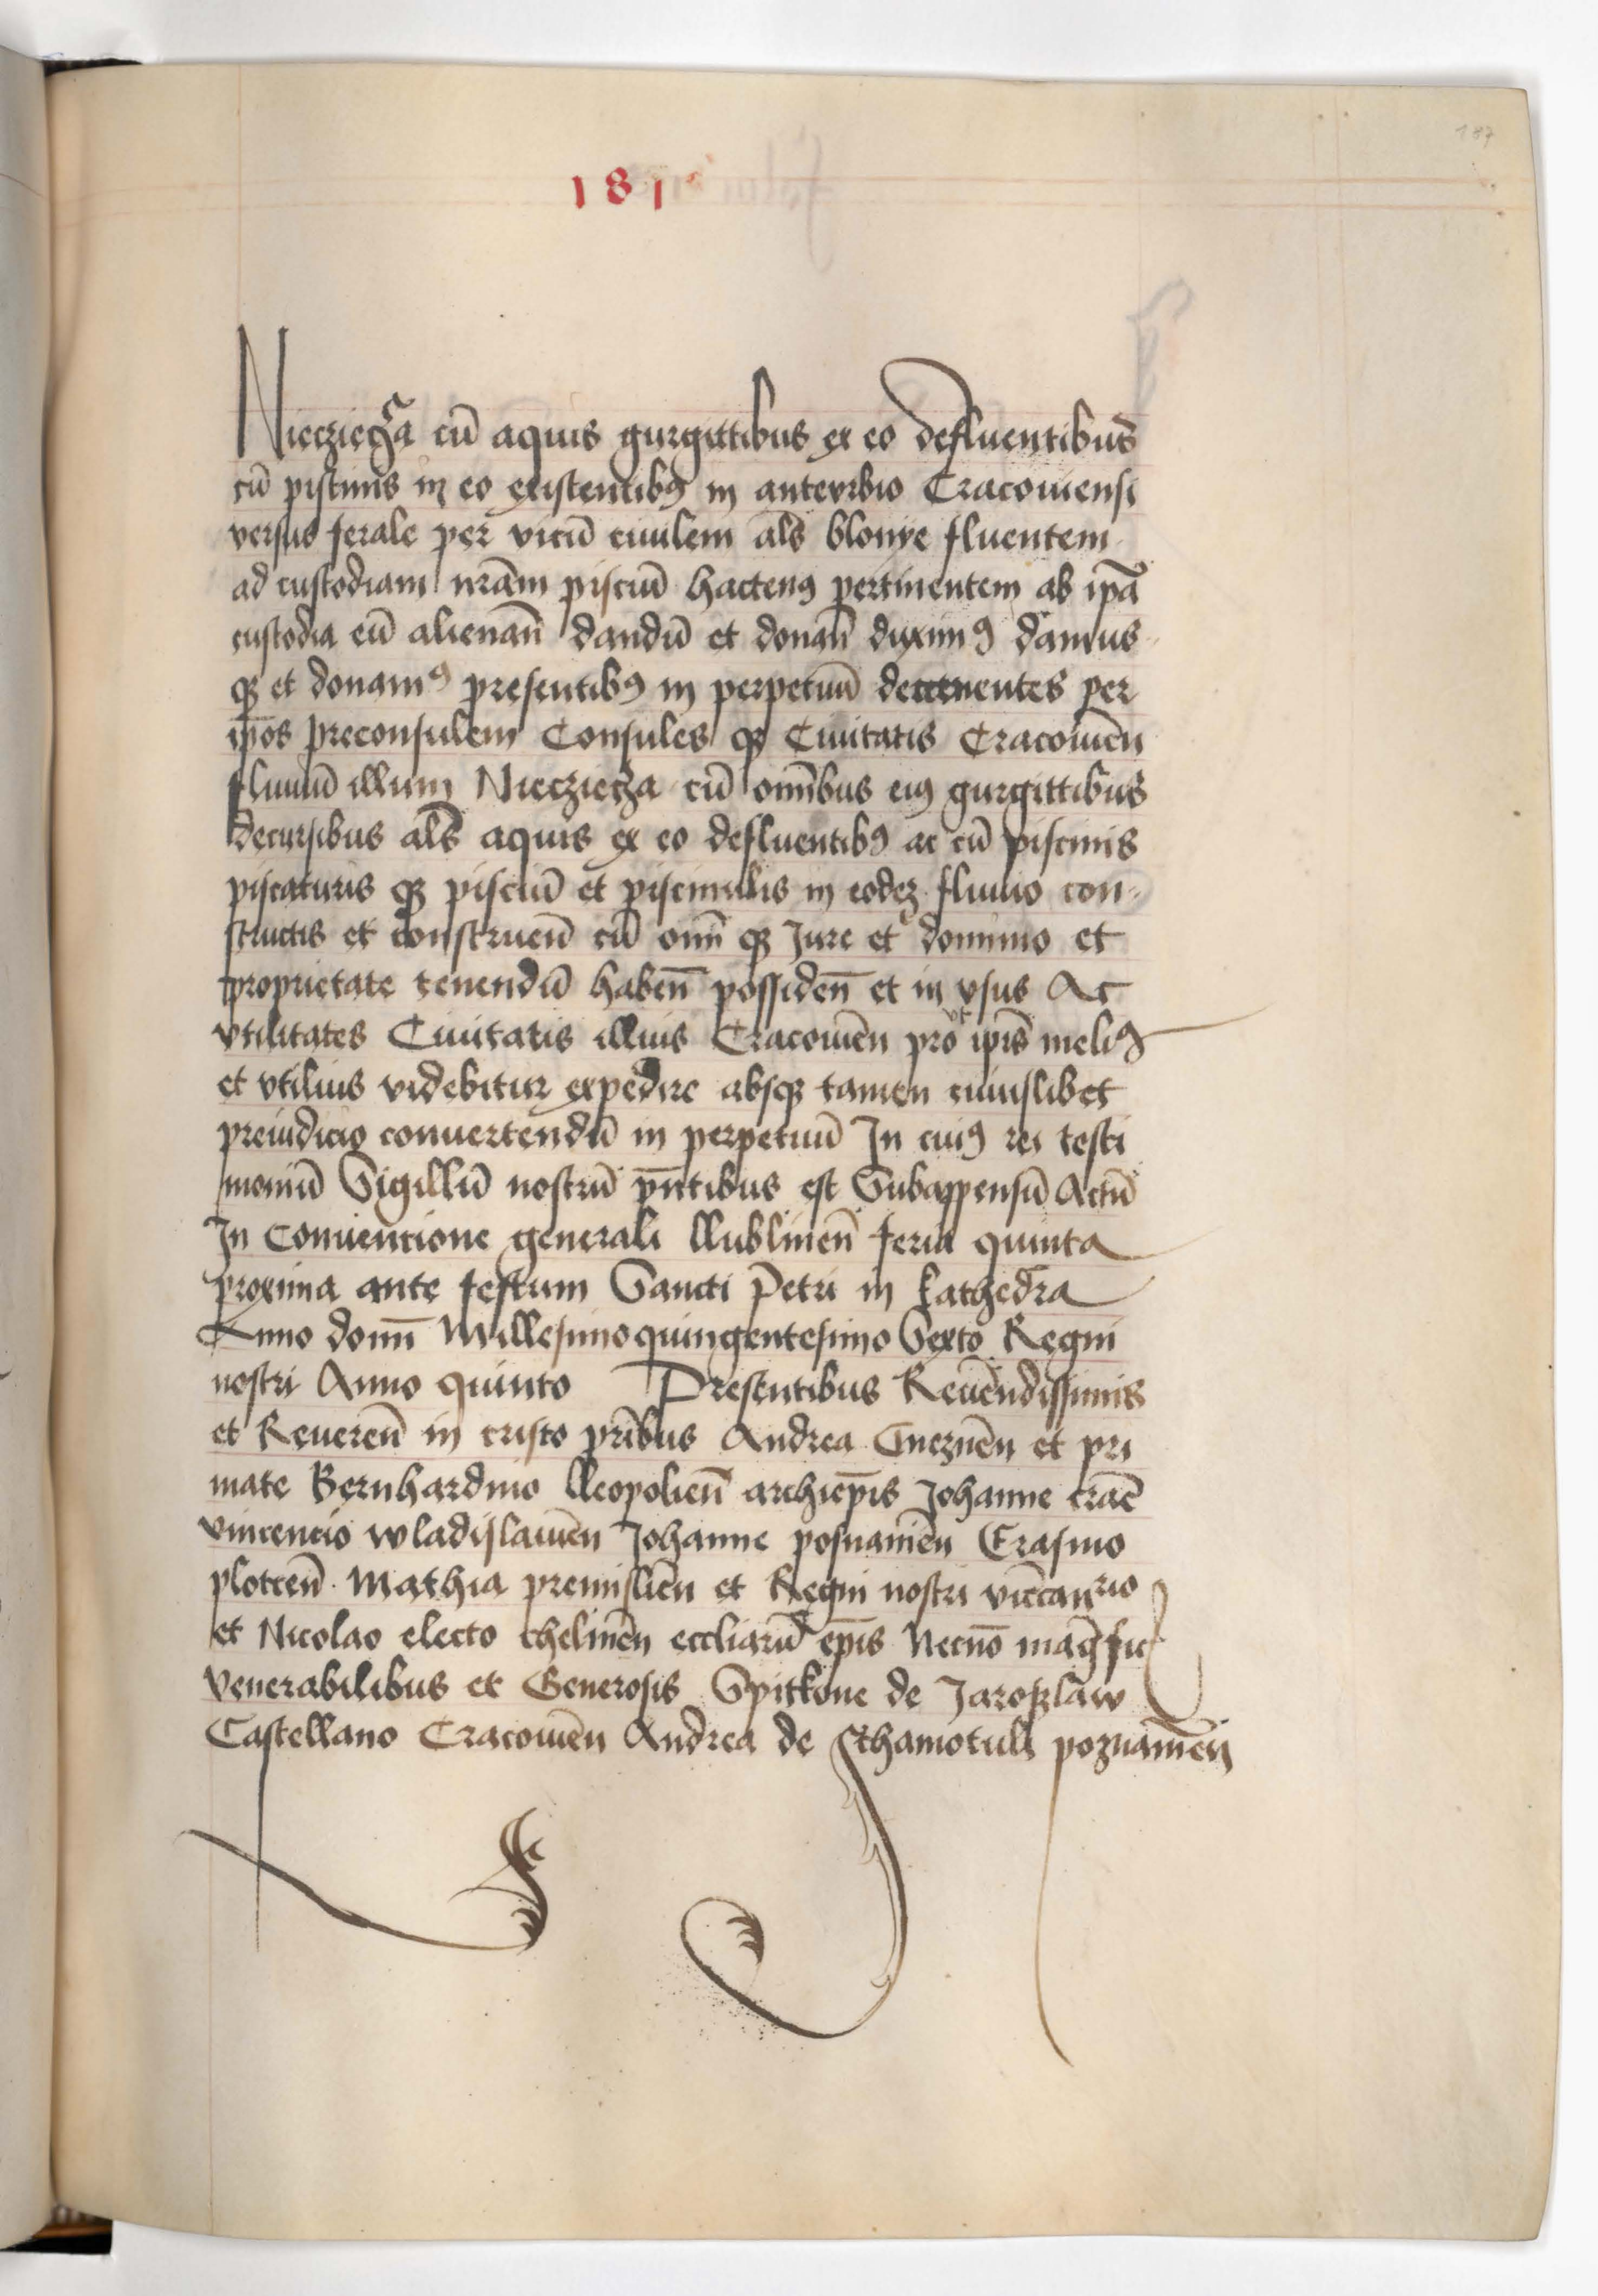 187
181
Niecziecza cū aquis gurgittibus ex eo defluentibus
cū piscinis in eo existentibꝰ in antevrbio Cracoviensi
versus ferale per vicū civilem als̄ blonye fluentem
ad custodiam nr̄am pisciū hactenꝰ pertinentem ab ip̄a
custodia eū alienan̄ dandū et donan̄ duximꝰ damus
qꝫ et donamꝰ presentibꝰ in perpetuū per
ip̄os preconsulem Consules qꝫ Civitatis Cracovien̄
fluviū illum Niecziecza cū omībus eiꝰ gurgittibus
decursibus als̄ aquis ex eo defluentibꝰ ac cū piscinis
piscaturis qꝫ pisciū et piscinulis in eodeꝫ fluvio con-
structis et construen̄ cū omī qꝫ Jure et dominio et
proprietate tenendū haben̄ possiden̄ et in vsus Ac
vtilitates Civitatis illius Cracovien̄ pro vt ipīs meliꝰ
et vtilius videbitur expedire absqꝫ tamen cuiuslibet
preiudicio convertendū in perpetuū In cuiꝰ rei testi
moniū Sigillū nostrū pn̄tibus est Subappensū Actū
In Conventione generali llublinen̄ feria quinta
proxima ante festum Sancti Petri in kathedra
Anno domī Millesimoquingentesimo Sexto Regni
nostri Anno quinto Presentibus Reven̄dissimis
et Reveren̄ in cristo pr̄ibus Andrea Gneznen̄ et pri
mate Bernhardino lleopolien̄ archiep̄is Johanne crac̄
vincencio wladislavien̄ Johanne posnanien̄ Erasmo
plocen̄ Mathia premislien̄ et Regni nostri vicecan̄rio
et Nicolao electo chelmen̄ eccliarū ep̄is Necnō magfic
venerabilibus et Generosis Spitkone de Jaroslaw
Castellano Cracovien̄ Andrea de Schamotuli poznanien̄